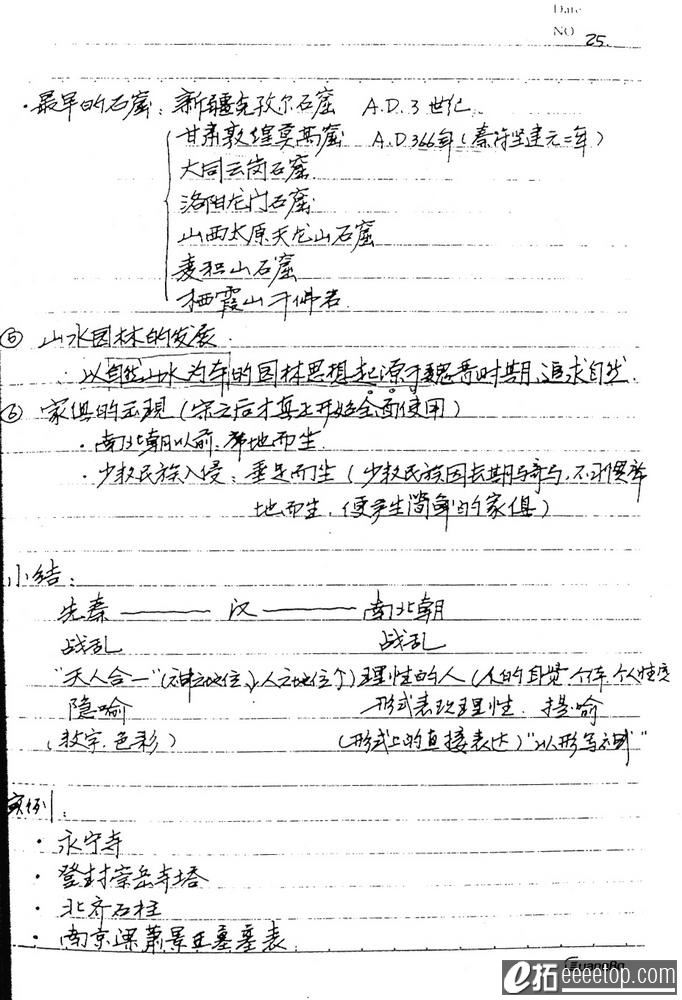 Date
NO 25.
·最早的石窟：新疆克孜尔石窟 A.D.3世纪
甘肃敦煌莫高窟 A.D366年(秦苻坚建元二年)
大同云岗石窟
洛阳龙门石窟
山西太原天龙山石窟
麦积山石窟
栖霞山千佛岩.
⑤ 山水园林的发展.
∴以自然山水为本的园林思想起源于魏晋时期,追求自然.
⑥ 家俱的出现(宋之后才真正开始全面使用)
·南北朝以前:席地而坐
·少数民族入侵:垂足而坐(少数民族因长期骑马,不习惯席
地而坐,便产生简单的家俱)
小结:
先秦 —— 汉 —— 南北朝
战乱 战乱
"天人合一"(神之地位↓,人之地位↑) 理性的人(人的自觉 个体 个人性
隐喻 形式表现理性. 提喻
(数字.色彩) (形式上的直接表达)"以形写神"
实例:
·永宁寺
·登封嵩岳寺塔
·北齐石柱
·南京梁萧景王墓墓表.
GuangBo
e拓 eeeetop.com